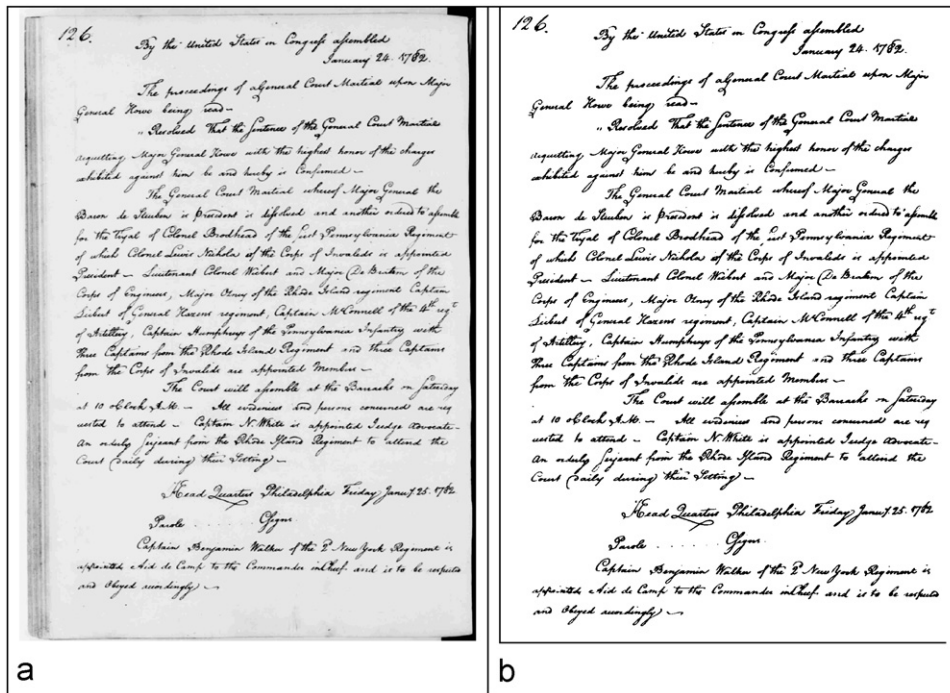 126.
By the United States in Congress assembled
January 24. 1782.
The proceedings of a General Court Martial upon Major
General Howe being read —
"Resolved That the Sentence of the General Court Martial
acquitting Major General Howe with the highest honor of the charges
exhibited against him be and hereby is Confirmed —
The General Court Martial whereof Major General the
Baron de Steuben is President is dissolved and another ordered to assemble
for the Tryal of Colonel Brodhead of the first Pennsylvania Regiment
of which Colonel Lewis Nichola of the Corps of Invalids is appointed
President — Lieutenant Colonel Wiebert and Major De Brahm of the
Corps of Engineers, Major Olney of the Rhode Island regiment Captain
Seibert of General Hazens regiment, Captain McConnell of the 4th regt
of Artillery, Captain Humphreys of the Pennsylvania Infantry with
three Captains from the Rhode Island Regiment and three Captains
from the Corps of Invalids are appointed Members —
The Court will assemble at the Barracks on Saturday
at 10 oClock A.M. — All evidences and persons concerned are req
uested to attend — Captain N. White is appointed Judge Advocate —
An orderly Serjeant from the Rhode Island Regiment to attend the
Court Daily during their Sitting —
Head Quarters Philadelphia Friday Januy. 25. 1782
Parole . . . . . . . Csigns
Captain Benjamin Walker of the 2d New York Regiment is
appointed Aid de Camp to the Commander in Cheif. and is to be respected
and Obeyed accordingly —
a
126.
By the United States in Congress assembled
January 24. 1782.
The proceedings of a General Court Martial upon Major
General Howe being read —
"Resolved That the Sentence of the General Court Martial
acquitting Major General Howe with the highest honor of the charges
exhibited against him be and hereby is Confirmed —
The General Court Martial whereof Major General the
Baron de Steuben is President is dissolved and another ordered to assemble
for the Tryal of Colonel Brodhead of the first Pennsylvania Regiment
of which Colonel Lewis Nichola of the Corps of Invalids is appointed
President — Lieutenant Colonel Wiebert and Major De Brahm of the
Corps of Engineers, Major Olney of the Rhode Island regiment Captain
Seibert of General Hazens regiment, Captain McConnell of the 4th regt
of Artillery, Captain Humphreys of the Pennsylvania Infantry with
three Captains from the Rhode Island Regiment and three Captains
from the Corps of Invalids are appointed Members —
The Court will assemble at the Barracks on Saturday
at 10 oClock A.M. — All evidences and persons concerned are req
uested to attend — Captain N. White is appointed Judge Advocate —
An orderly Serjeant from the Rhode Island Regiment to attend the
Court Daily during their Sitting —
Head Quarters Philadelphia Friday Januy. 25. 1782
Parole . . . . . . . Csigns
Captain Benjamin Walker of the 2d New York Regiment is
appointed Aid de Camp to the Commander in Cheif. and is to be respected
and Obeyed accordingly —
b